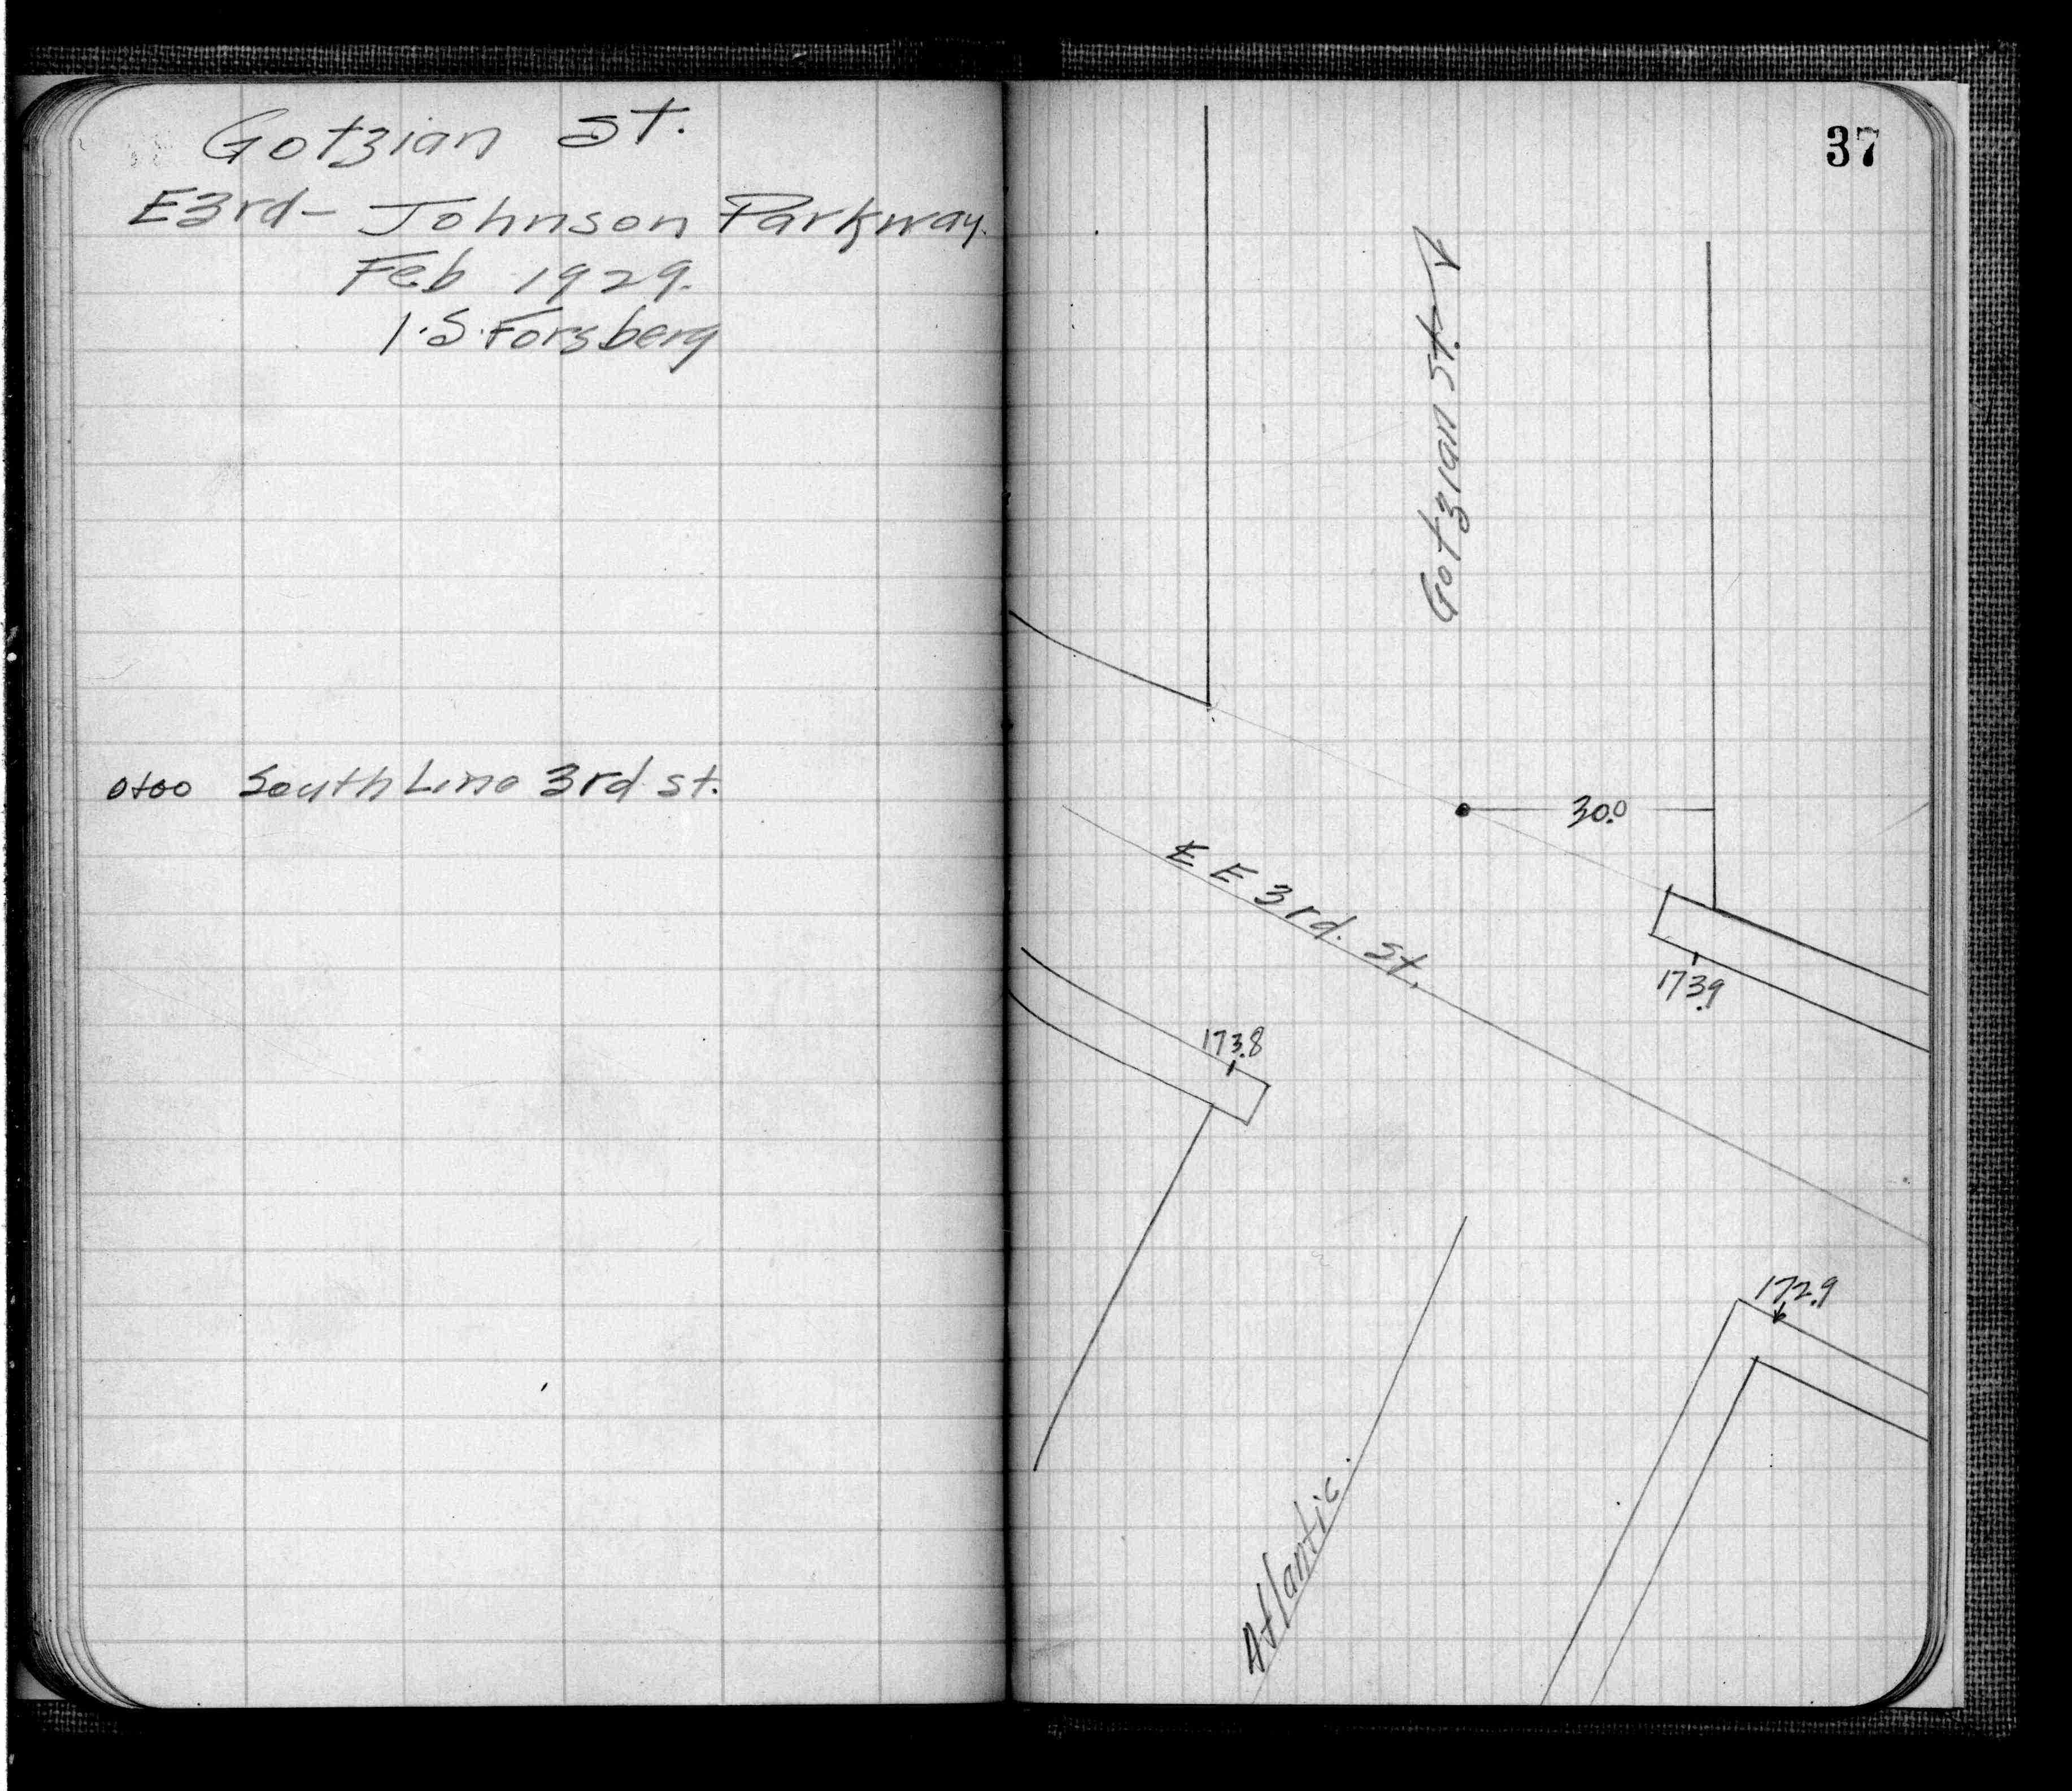 Gotzian St.
E3rd - Johnson Parkway.
Feb 1929.
I.S. Forsberg
0+00 South Line 3rd st.
37
Gotzian St.
30.0
℄ E 3rd. St.
173.9
173.8
172.9
Atlantic.